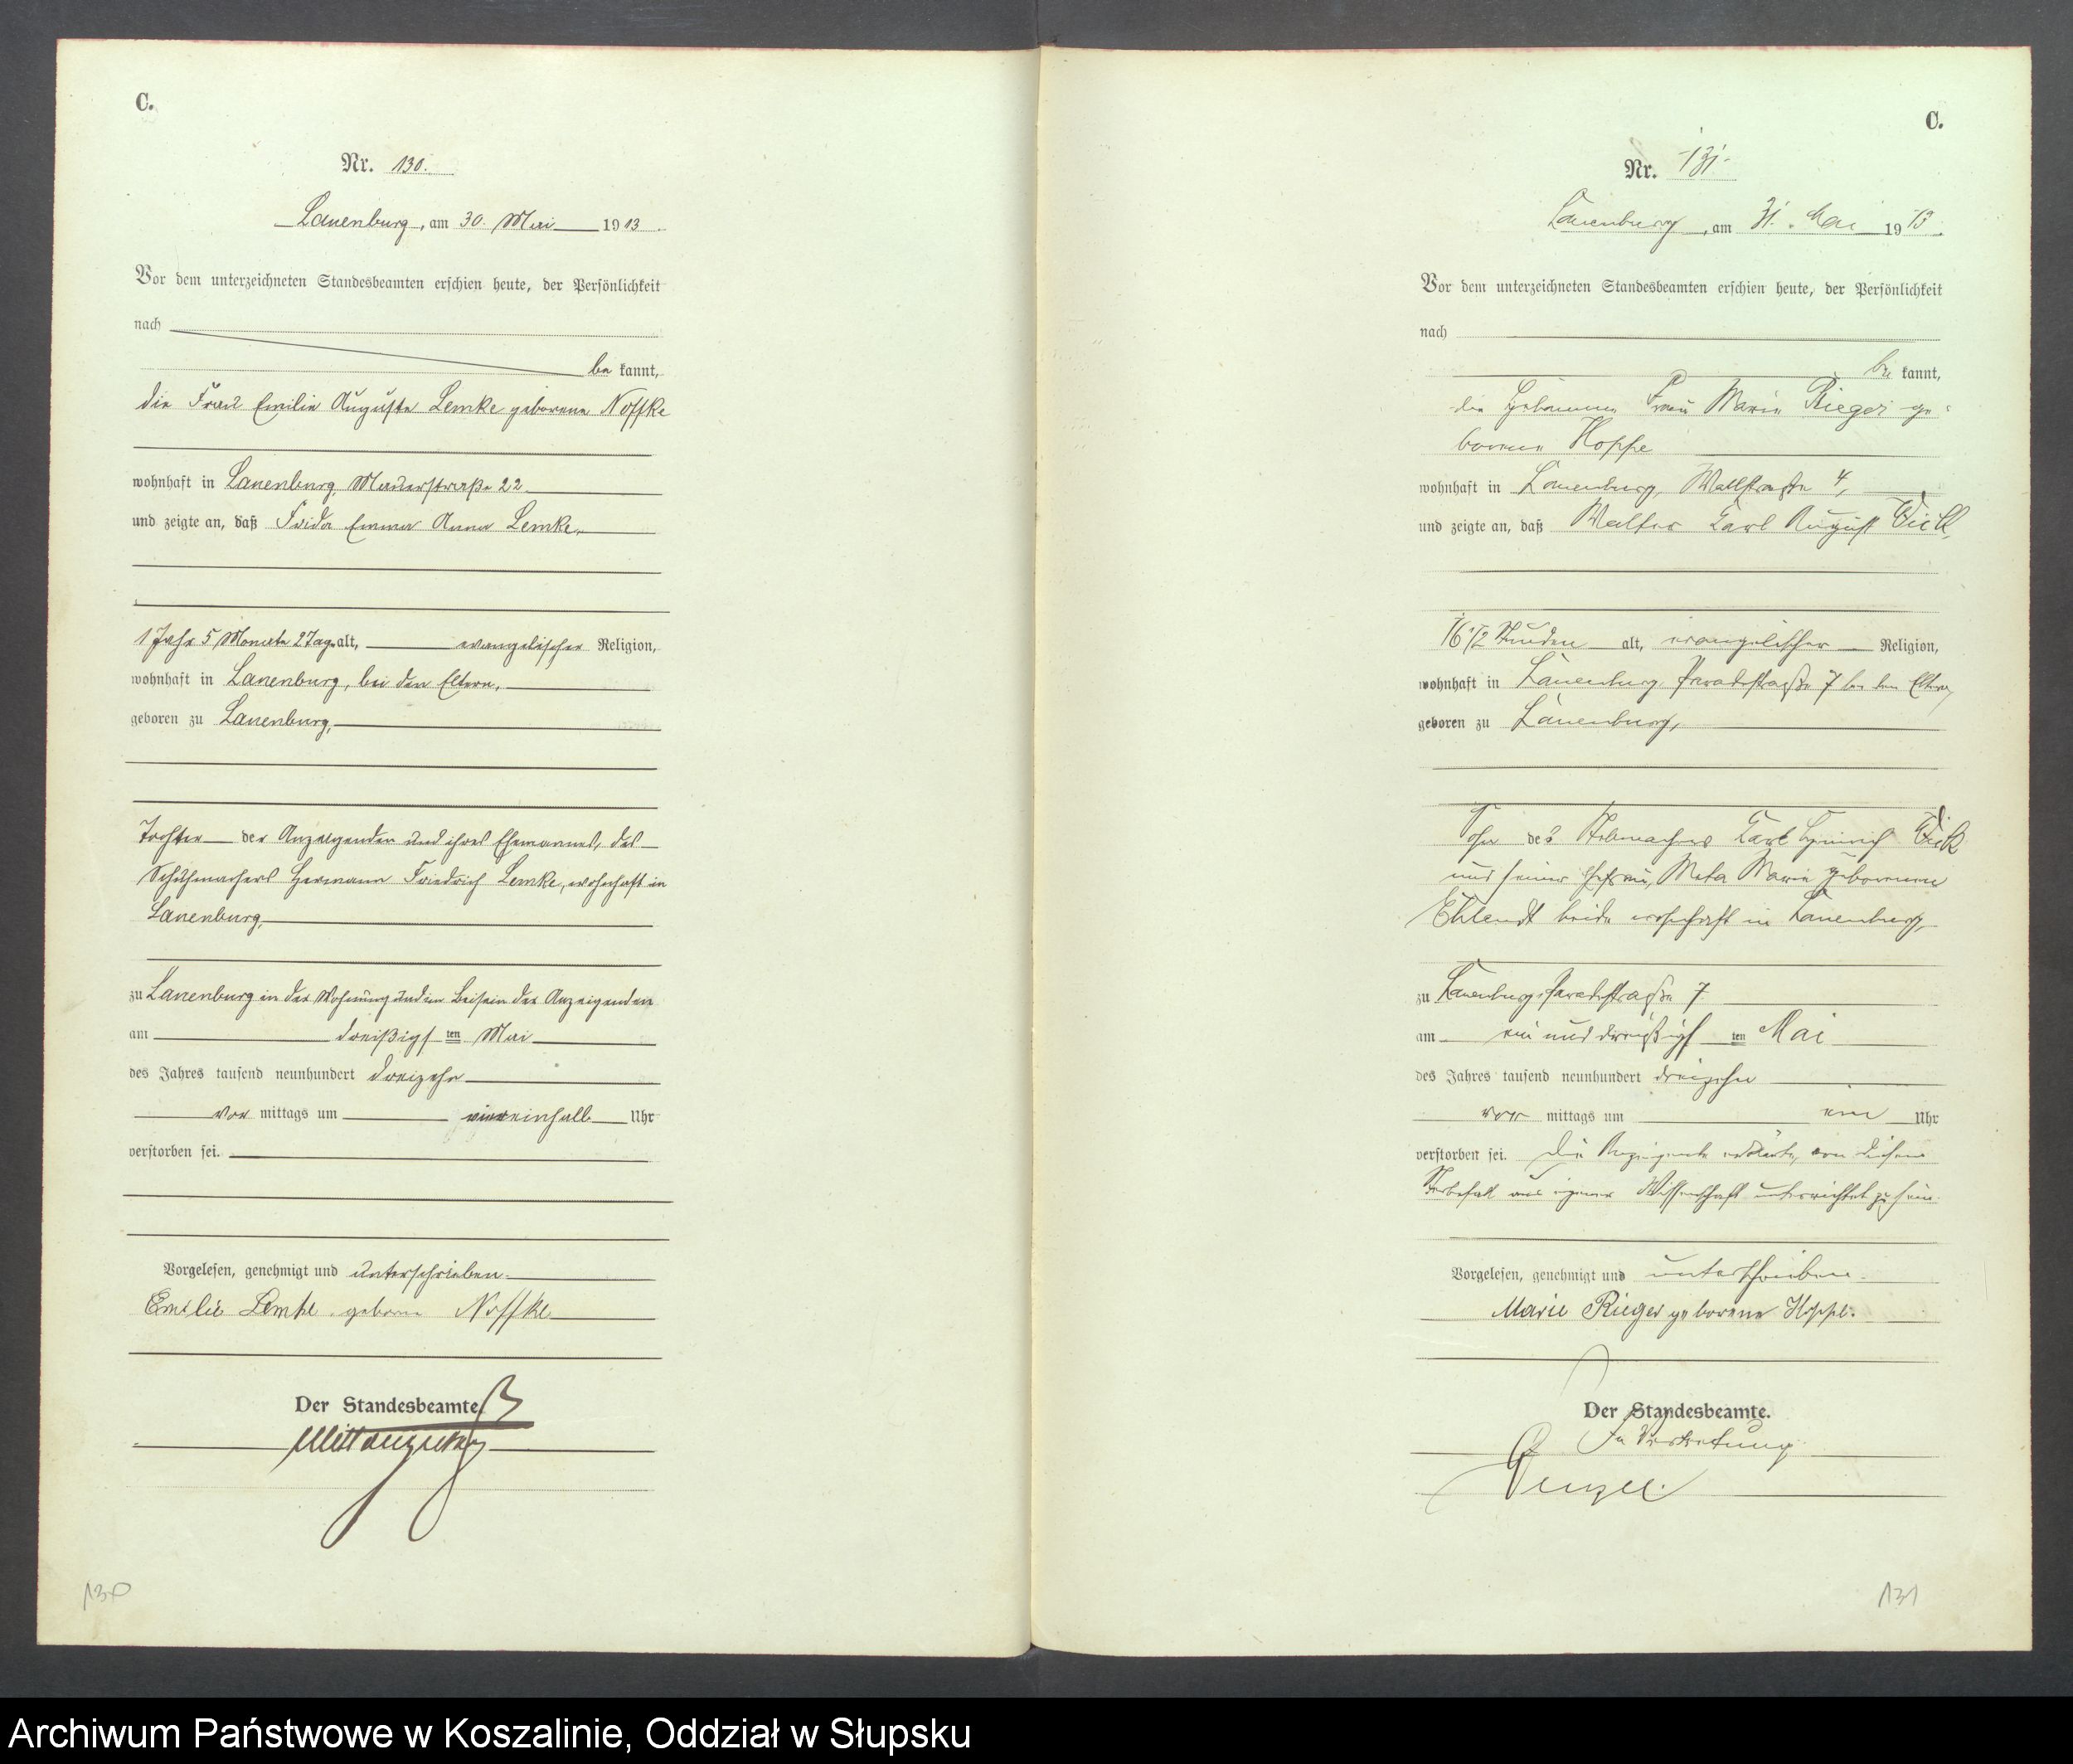 C.
Nr. 130.
Lauenburg, am 30. Mai 1913.
Vor dem unterzeichneten Standesbeamten erschien heute, der Persönlichkeit
nach
bekannt,
die Frau Emilie Auguste Lemke geborene Noffke
wohnhaft in Lauenburg, Mauerstraße 22
und zeigte an, daß Frida Emma Anna Lemke,
1 Jahr 5 Monate 2 Tage alt, evangelischer Religion,
wohnhaft in Lauenburg, bei den Eltern,
geboren zu Lauenburg,
Tochter der Anzeigenden und ihres Ehemannes, des
Schuhmachers Hermann Friedrich Lemke, wohnhaft in
Lauenburg,
zu Lauenburg in der Wohnung und im Beisein der Anzeigenden
am dreißigsten Mai
des Jahres tausend neunhundert dreizehn
vormittags um einhalb Uhr
verstorben sei.
Vorgelesen, genehmigt und unterschrieben.
Emilie Lemke geborne Noffke
Der Standesbeamte.
130
C.
Nr. 131.
Lauenburg, am 31. Mai 1913.
Vor dem unterzeichneten Standesbeamten erschien heute, der Persönlichkeit
nach
bekannt,
die Hebamme Frau Marie Rieger ge-
borene Hoppe
wohnhaft in Lauenburg, Wallstraße 4,
und zeigte an, daß Walter Carl August
16 1/2 Stunden alt, evangelischer Religion,
wohnhaft in Lauenburg Paradestraße 7 bei den Eltern,
geboren zu Lauenburg,
Sohn des Carl Heinrich
und seiner Ehefrau, Meta Marie geborenen
beide wohnhaft in Lauenburg,
zu Lauenburg, Paradestraße 7
am ein und dreißigsten Mai
des Jahres tausend neunhundert dreizehn
vormittags um ein Uhr
verstorben sei. Die Anzeigende erklärte, von diesem
Sterbefall aus eigener Wissenschaft unterrichtet zu sein.
Vorgelesen, genehmigt und unterschrieben.
Marie Rieger geborene Hoppe.
Der Standesbeamte.
In Vertretung
131
Archiwum Państwowe w Koszalinie, Oddział w Słupsku